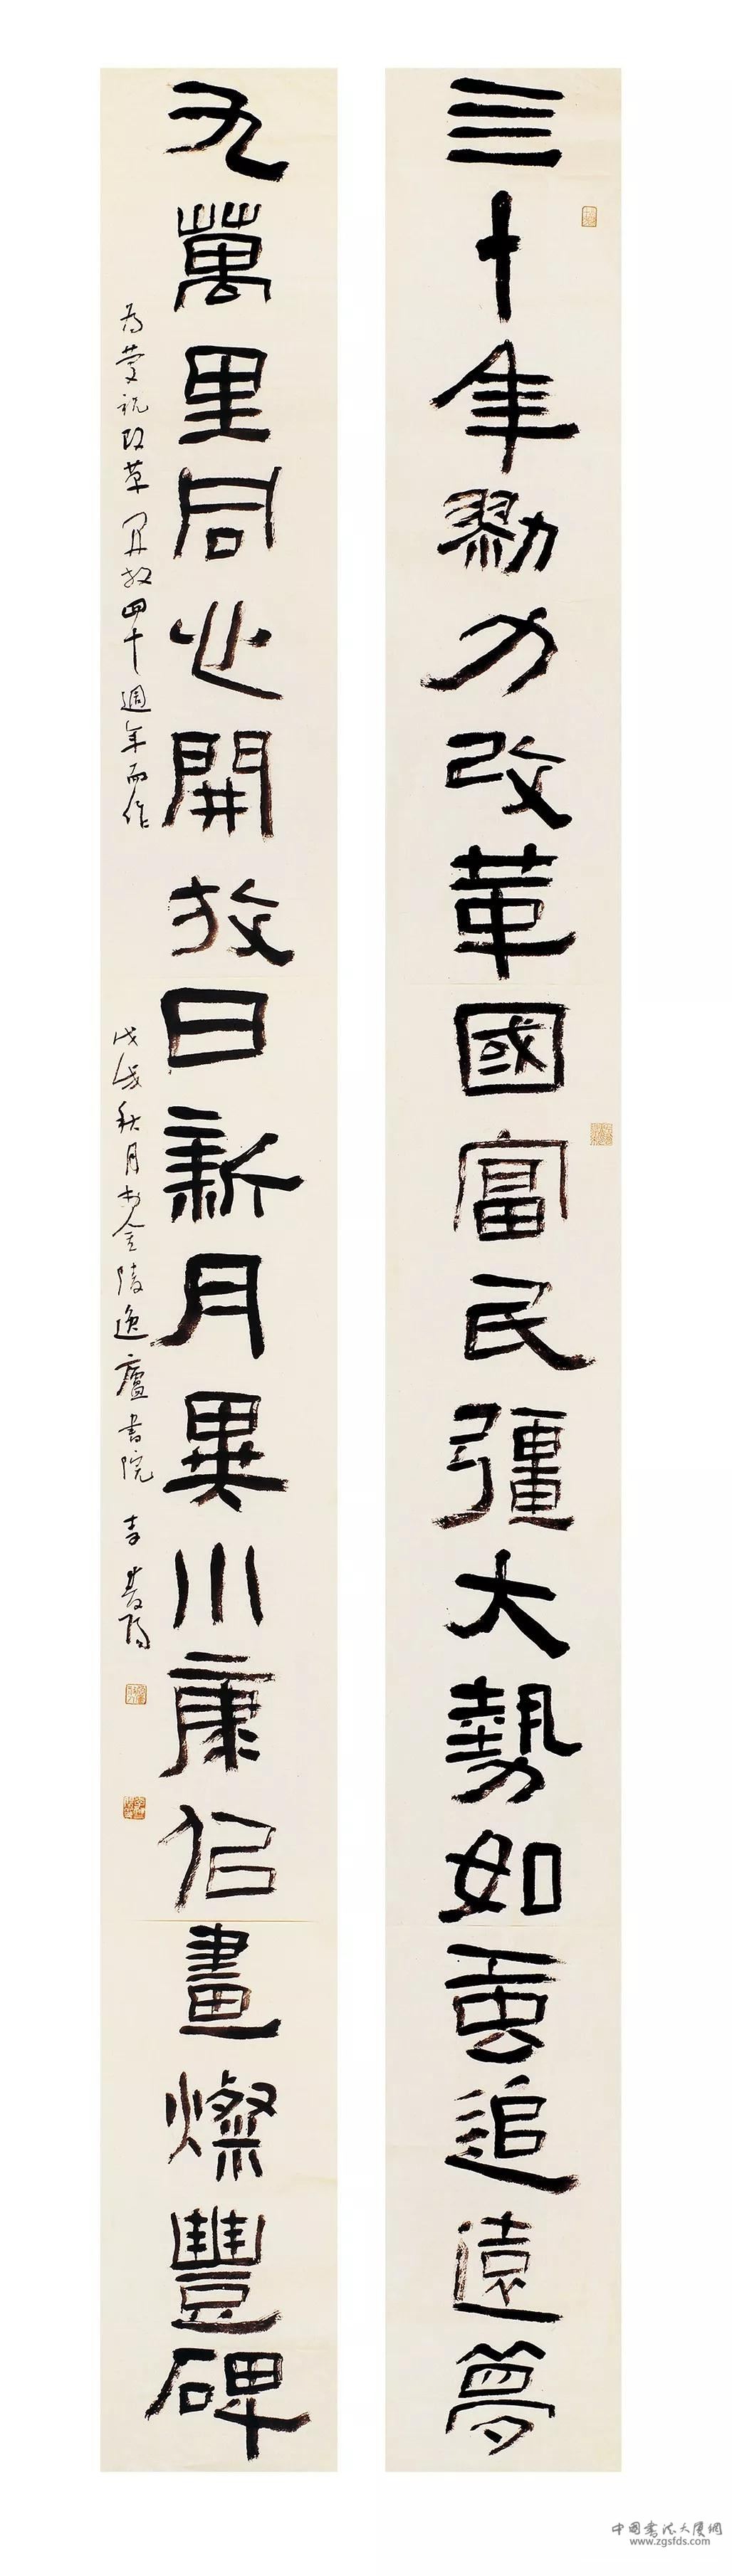 亖十年勠力改革國富民彊大勢如雲追遠夢
九萬里同心開放日新月異小康佀畫燦豐碑
為慶祝改革開放四十週年而作
戊戌秋月於金陵逸廬書院
中國書法大廈網
www.zgsfds.com